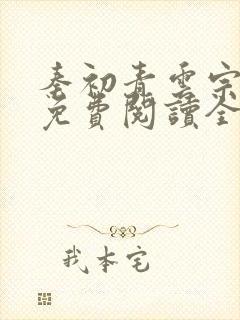 秦初青雲宗
免費閱讀全
我本宅